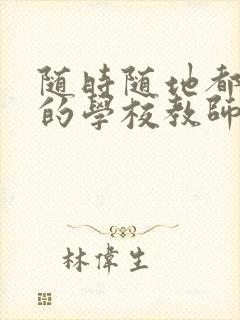 随時隨地都
的學校教師
林偉生